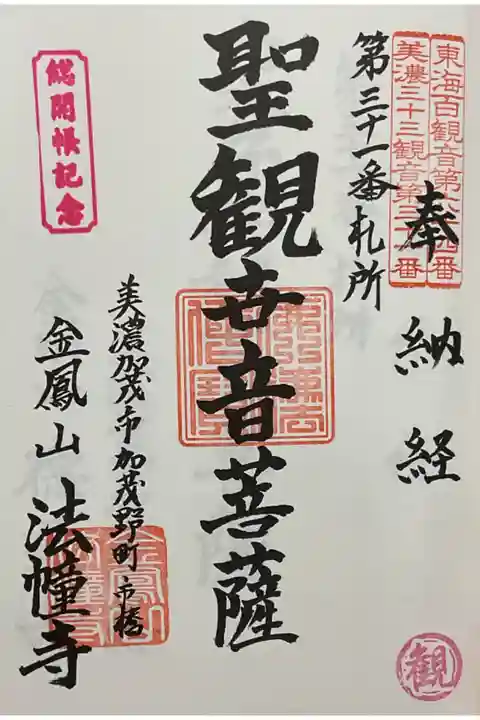 東海百観音第六十四番
美濃三十三観音第三十一番
奉納経
第三十一番札所
聖観世音菩薩
美濃加茂市加茂野町市橋
金鳳山法幢寺
総開帳記念
観